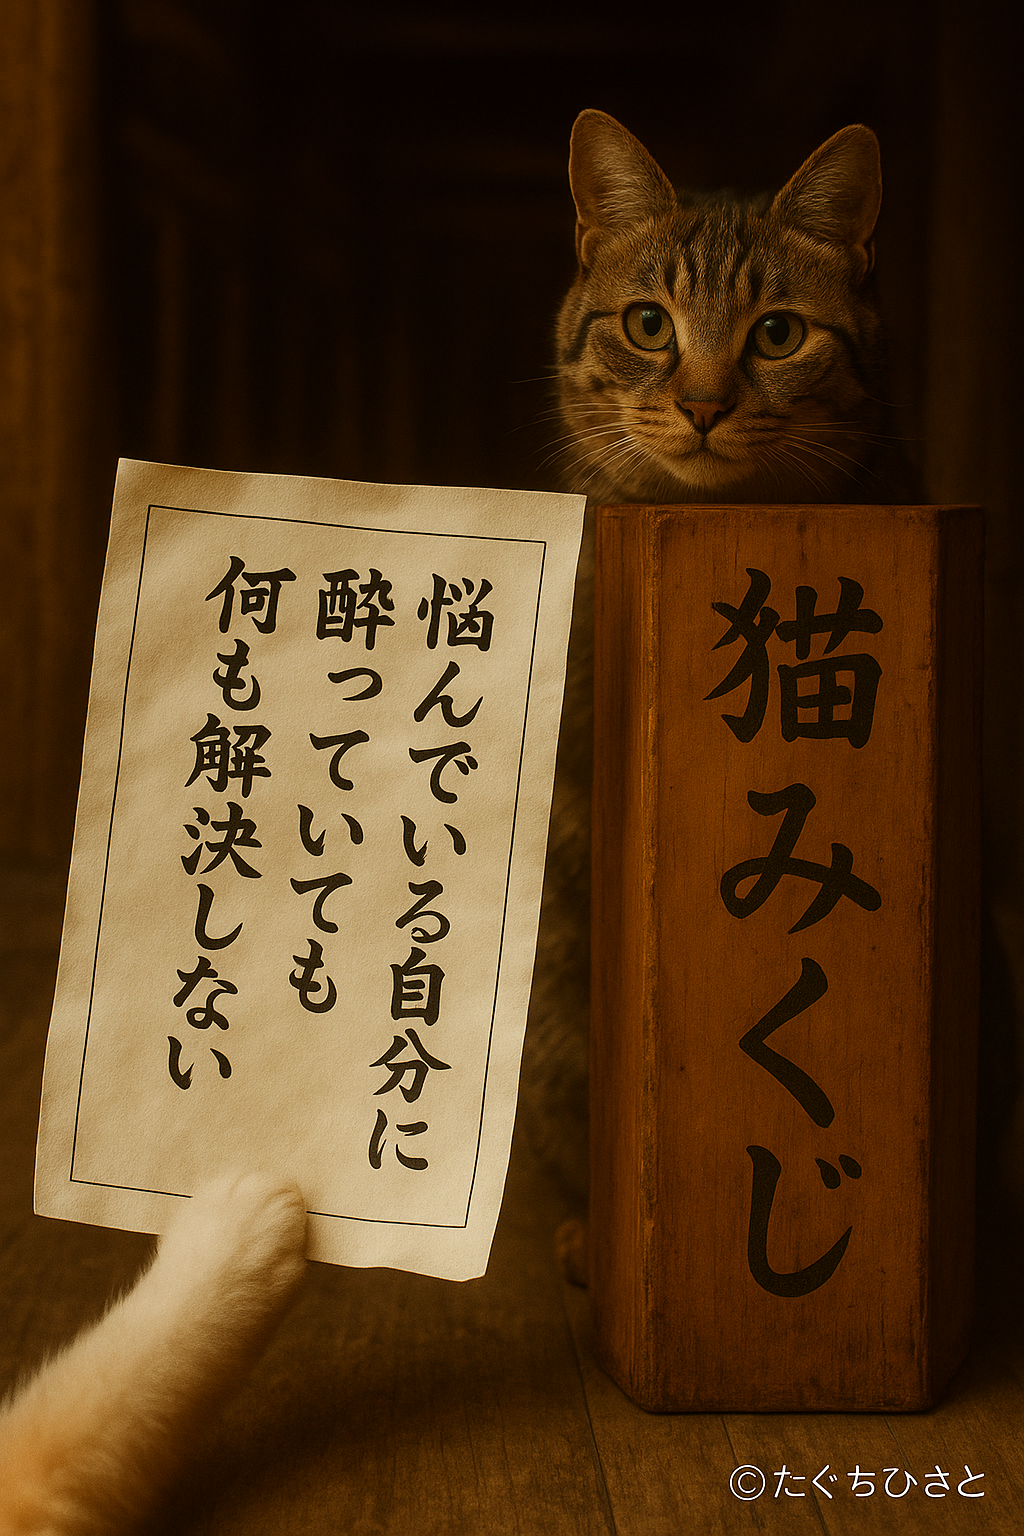 悩んでいる自分に
酔っていても
何も解決しない
猫みくじ
©たぐちひさと